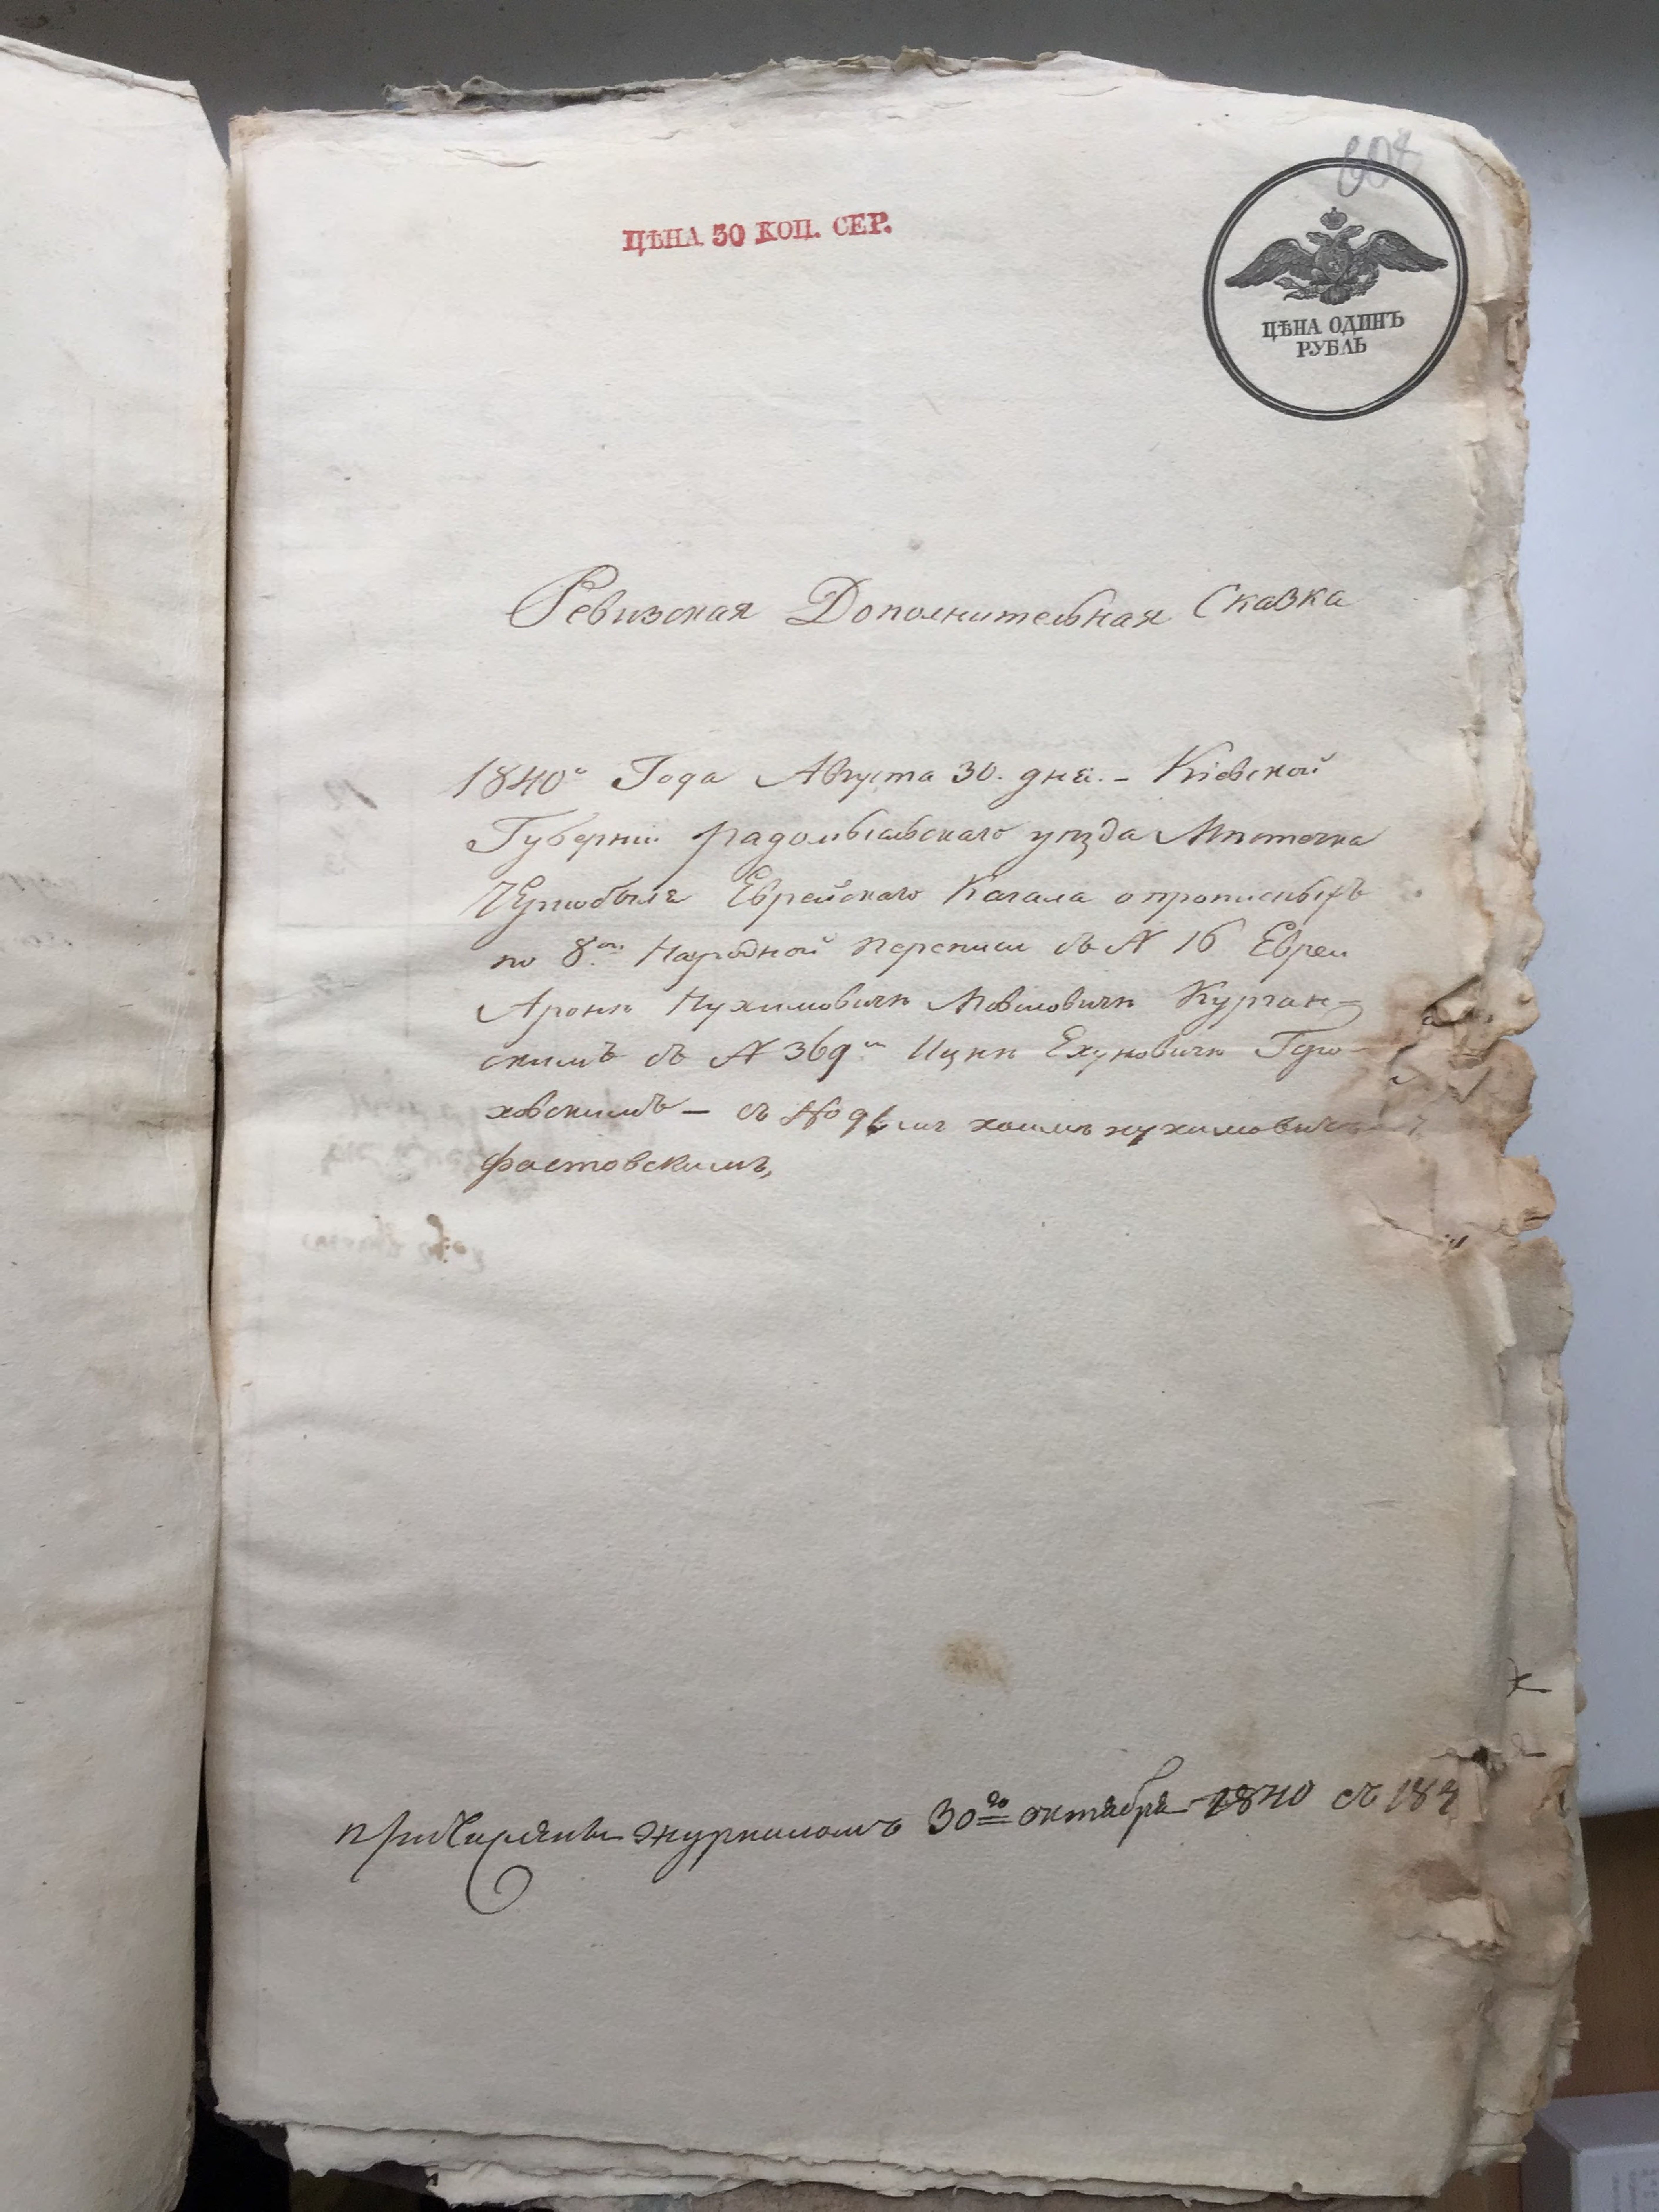 608
ЦѢНА 30 КОП. СЕР.
ЦѢНА ОДИНЪ
РУБЛЬ
Ревизская Дополнительная Сказка
1840го Года Августа 30. дня. – Кіевской
Губерніи Радомысльскаго уѣзда Мѣстечка
Чернобыля Еврейскаго Кагала о прописныхъ
по 8ой Народной переписи въ № 16 Евреи
Аронѣ Нухимовичѣ Мовшовичѣ Курган=
скимъ въ № 369м Ицкѣ Ехуновичѣ Горо-
ховскимъ – въ № 96м хаимѣ нухимовичѣ
фастовскимъ,
причислены журналомъ 30го октября 1840 съ 184